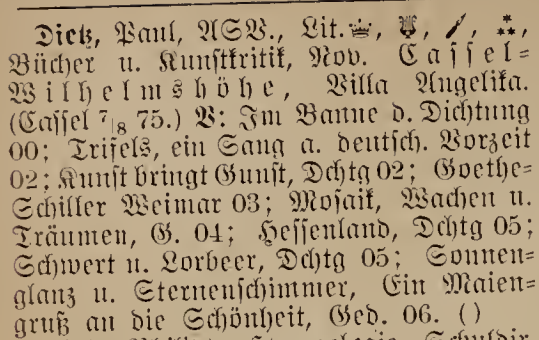 Dietz, Paul, ASV., Lit.
Bücher u. Kunstkritik, Nov. Cassel=
Wilhelmshöhe, Villa Angelika.
(Cassel 7/8 75.) V: Im Banne d. Dichtung
00; Trifels, ein Sang a. deutsch. Vorzeit
02; Kunst bringt Gunst, Dchtg 02; Goethe=
Schiller Weimar 03; Mosaik, Wachen u.
Träumen, G. 04; Hessenland, Dchtg 05;
Schwert u. Lorbeer, Dchtg 05; Sonnen=
glanz u. Sternenschimmer, Ein Maien=
gruß an die Schönheit, Ged. 06. ()